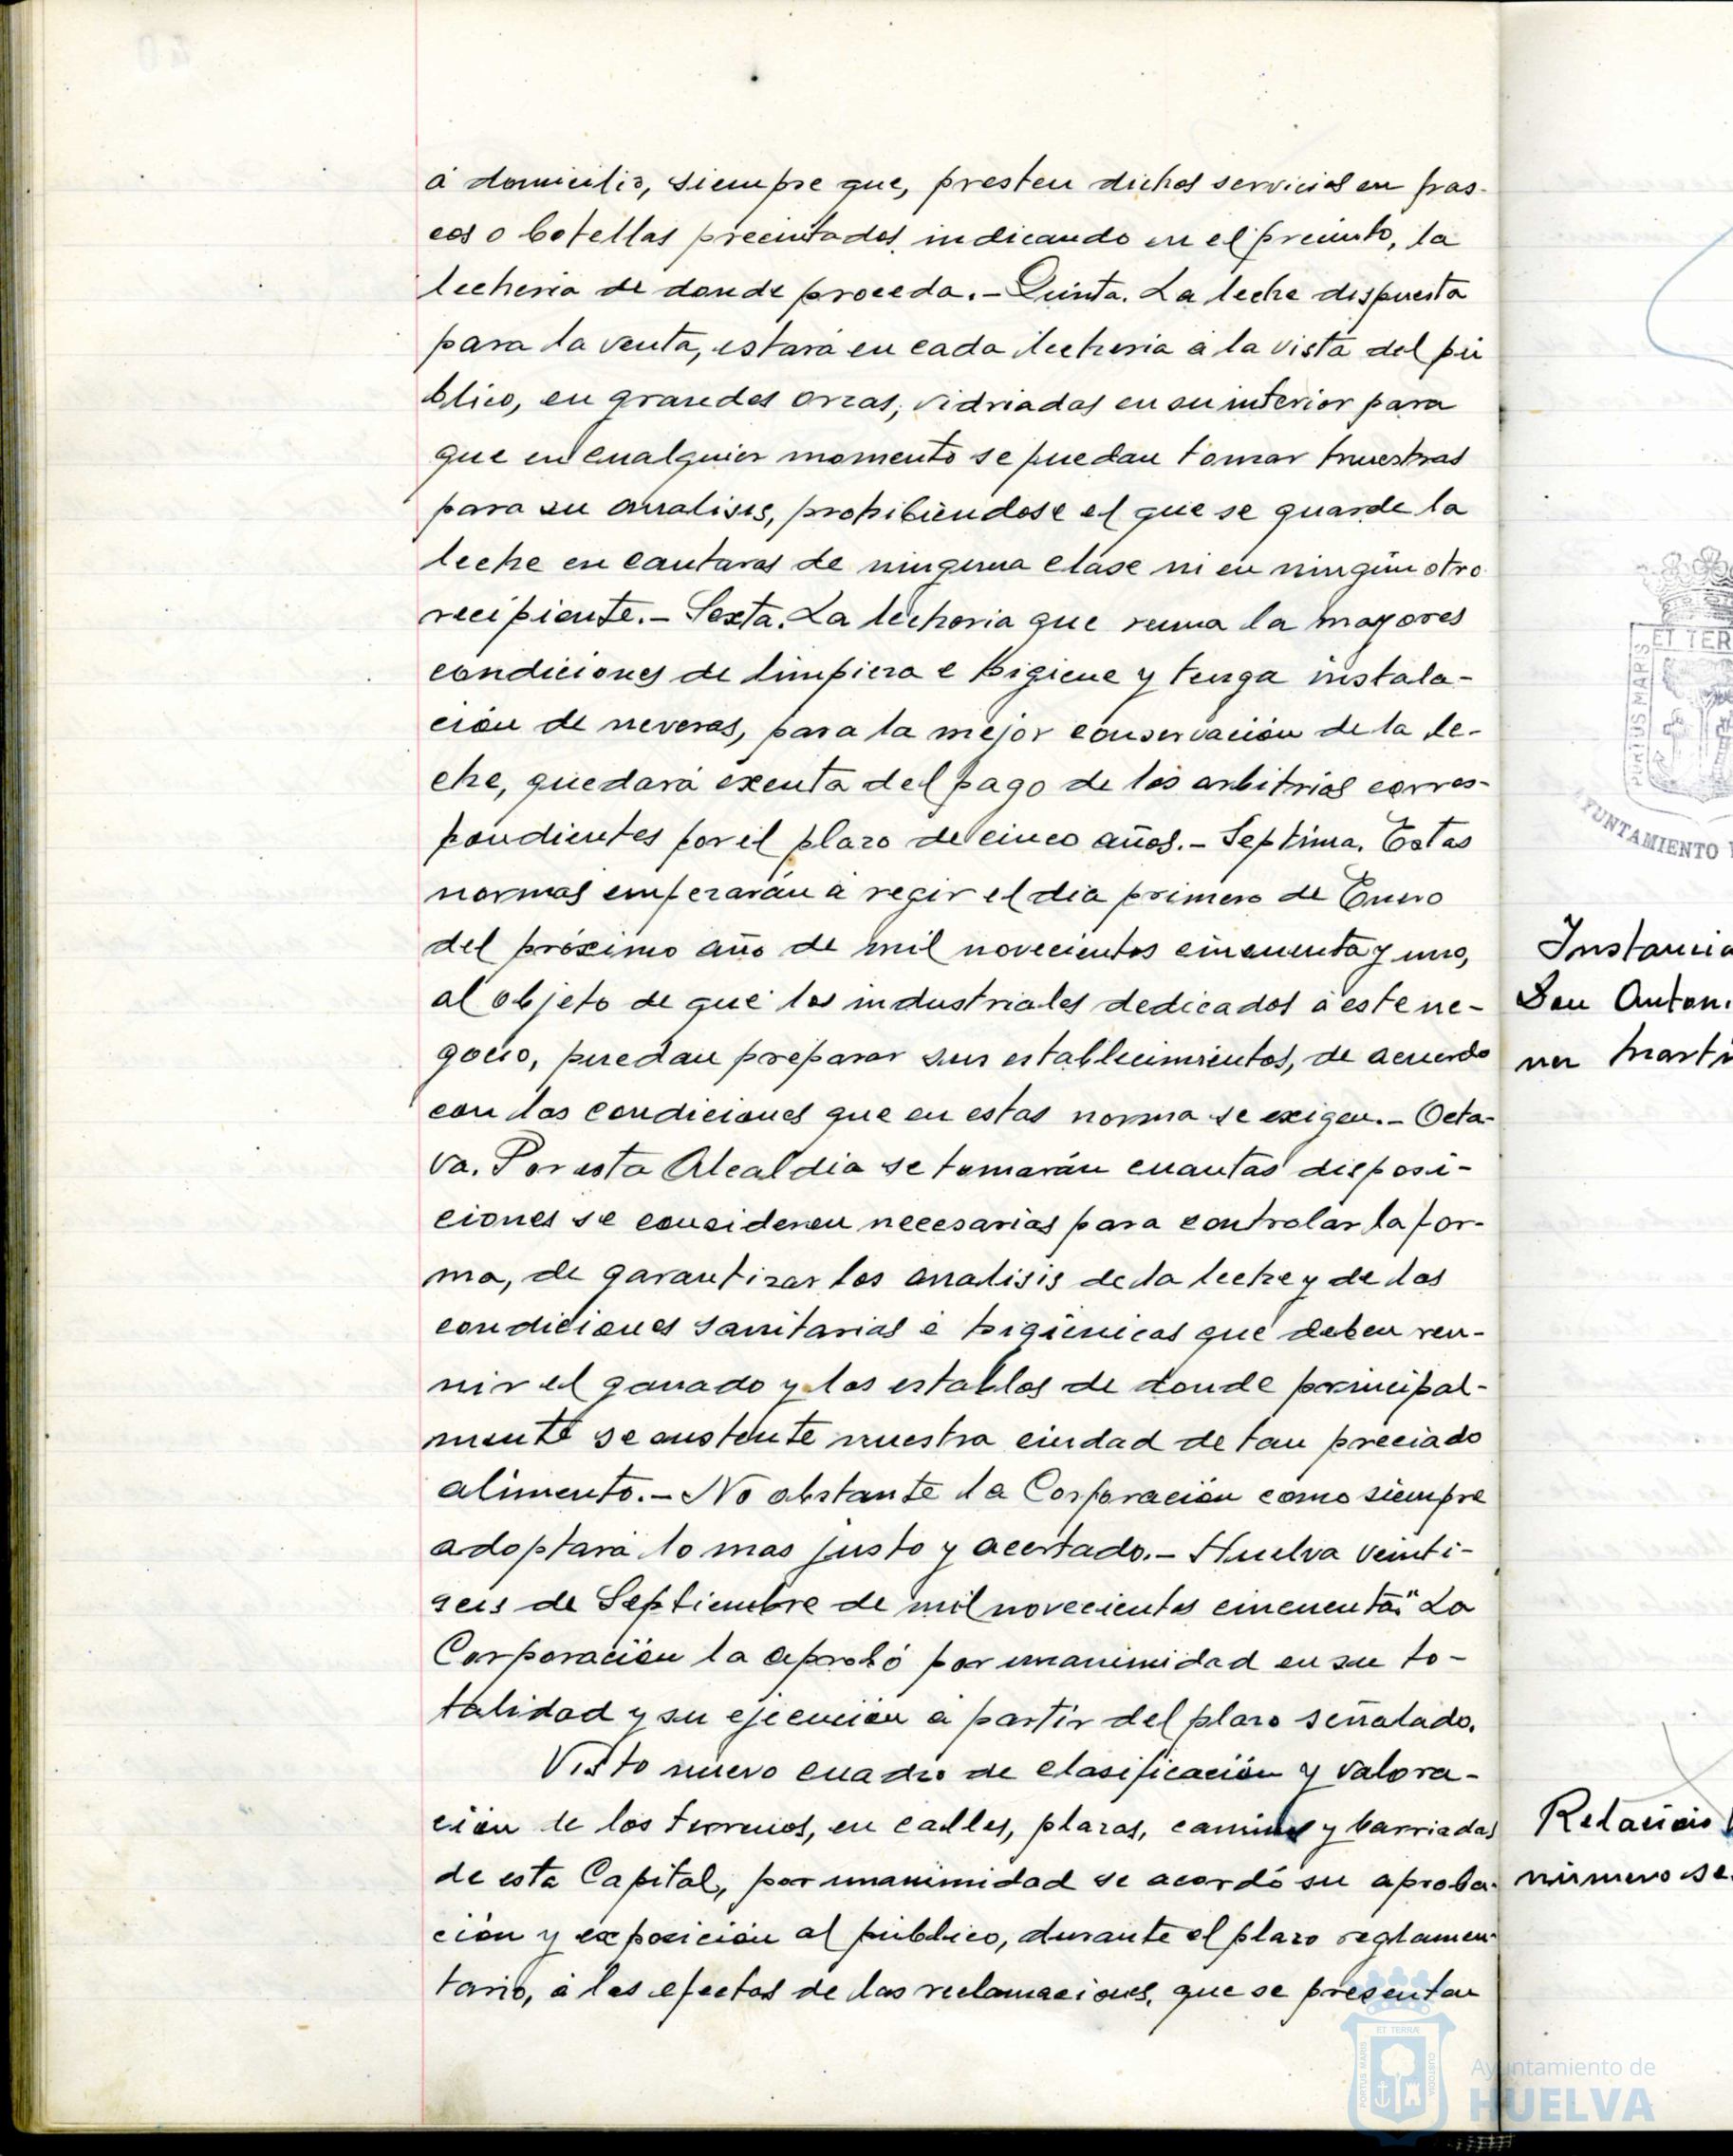 á domicilio, siempre que, presten dichos servicios en fras-
cos o botellas precintados, indicando en el precinto, la
lecheria de donde proceda.- Quinta. La leche dispuesta
para la venta, estará en cada lecheria á la vista del pú
blico, en grandes orzas, vidriadas en su interior para
que en cualquier momento se puedan tomar muestras
para su analisis, prohibiendose el que se guarde la
leche en cantaras de ninguna clase ni en ningún otro
recipiente.- Sexta. La lecheria que reuna la mayores
condiciones de limpieza e higiene y tenga instala-
ción de neveras, para la mejor conservación de la le-
che, quedará exenta del pago de los arbitrios corres-
pondientes por el plazo de cinco años.- Septima. Estas
normas empezarán á regir el dia primero de Enero
del próximo año de mil novecientos cincuenta y uno,
al objeto de que los industriales dedicados á este ne-
gocio, puedan preparar sus establecimientos, de acuerdo
con las condiciones que en estas norma se exigen.- Octa-
va. Por esta Alcaldia se tomarán cuantas disposi-
ciones se consideren necesarias para controlar la for-
ma, de garantizar los analisis de la leche y de las
condiciones sanitarias é higiénicas que deben reu-
nir el ganado y los establos de donde principal-
mente se sustente nuestra ciudad de tan preciado
alimento.- No obstante la Corporación como siempre
adoptará lo mas justo y acertado.- Huelva veinti-
seis de Septiembre de mil novecientos cincuenta." La
Corporación la aprobó por unanimidad en su to-
talidad y su ejecución á partir del plazo señalado.
Visto nuevo cuadro de clasificación y valora-
ción de los terrenos, en calles, plazas, caminos y barriadas
de esta Capital, por unanimidad se acordó su aproba-
ción y exposición al público, durante el plazo reglamen-
tario, á los efectos de las reclamaciones, que se presentan
ET TER
PORTUS MARIS
AYUNTAMIENTO
Instancia
Don Anton
Marti
Relación
número se
ET TERRÆ
PORTUS MARIS
CUSTODIA
Ayuntamiento de
HUELVA